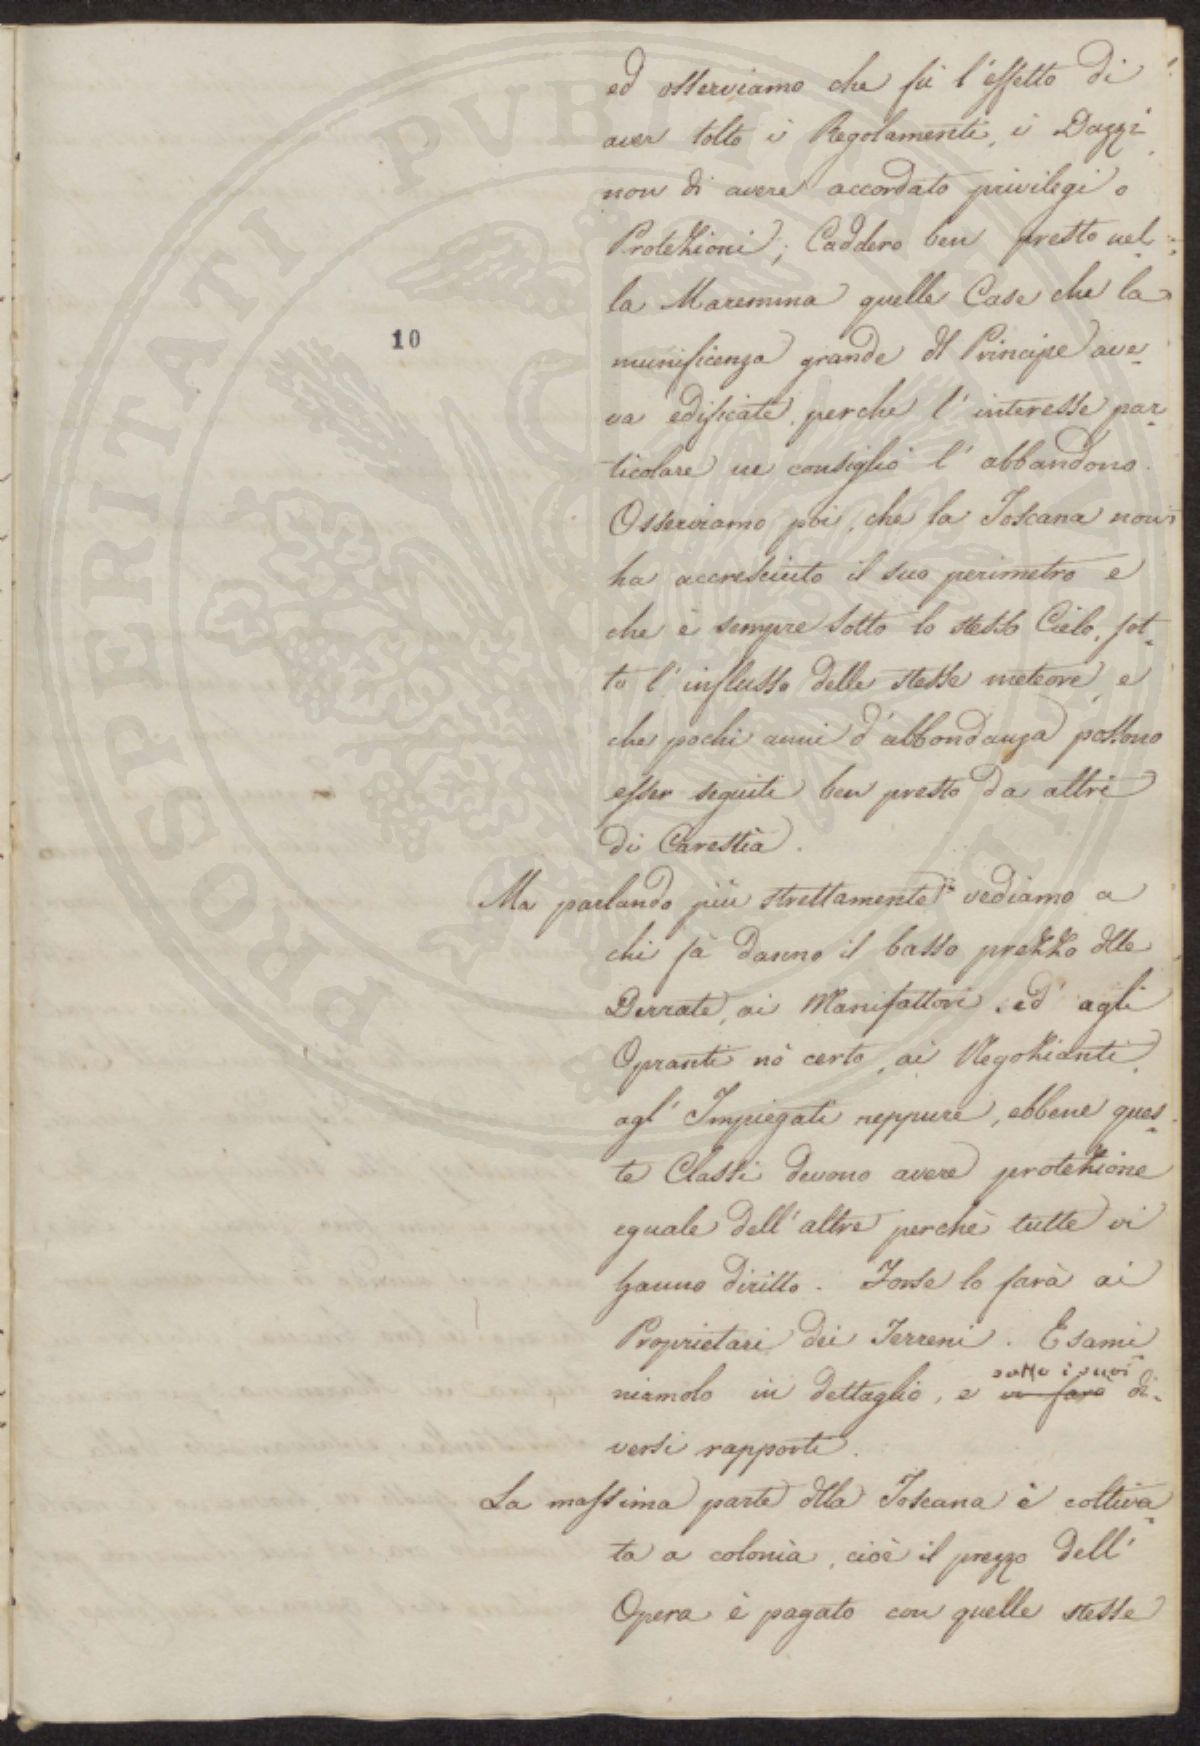 ed osserviamo che fù l'effetto di
aver tolto i Regolamenti, i Dazzi
non di avere accordato privilegi o
Protezioni; Caddero ben presto nel=
la Maremma quelle Case che la
10
munificenza grande dl Principe ave-
va edificate, perche l'interesse par-
ticolare ne consigliò l'abbandono.
Osserviamo poi, che la Toscana non
ha accresciuto il suo perimetro e
che è sempre sotto lo stesso Cielo, sot-
to l'influsso delle stesse meteore, e
che pochi anni d'abbondanza possono
esser seguiti ben presto da altri
di Carestìa.
Ma parlando più strettamente vediamo a
chi fà danno il basso prezzo dlle
Derrate, ai Manifattori, ed agli
Opranti nò certo, ai Negozianti,
agl'Impiegati neppure, ebbene ques-
te Classi devono avere protezione
eguale dell'altre perchè tutte vi
hanno diritto. Forse lo farà ai
Proprietari dei Terreni. Esami
sotto i suoi
niamolo in dettaglio, e di-
versi rapporti.
La massima parte dlla Toscana è coltiva-
ta a colonìa, cioè il prezzo dell'
Opera è pagato con quelle stesse
PROSPERITATI PVBLICAE